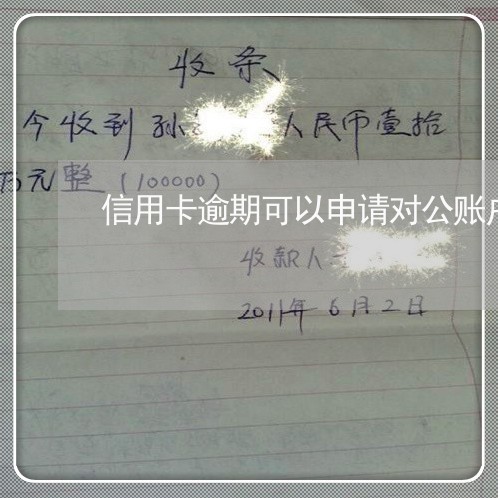 收条
今收到孙 人民币壹拾
万元整(100000)
信用卡逾期可以申请对公账户
收款人
2011年6月2日